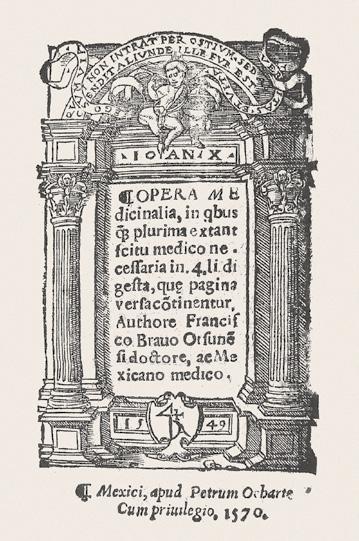 NON INTRAT PER OSTIVM SED
ASCENDIT ALIVNDE ILLE FVR EST
IOAN X
¶OPERA ME
dicinalia, in qbus
q̃ plurima extant
scitu medico ne-
cessaria in. 4. li. di
gesta, que pagina
versa cõtinentur,
Authore Francis
co Brauo Orsunẽ
si doctore, ac Me
xicano medico.
15 49
¶ Mexici, apud Petrum Ocharte
Cum priuilegio, 1570.